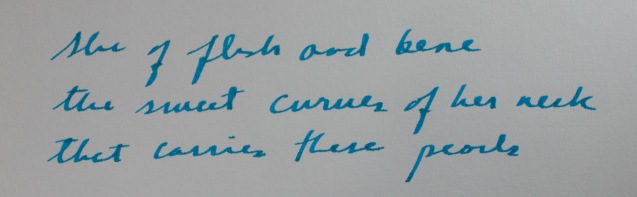 She of flesh and bone
the sweet curves of her neck
that carries these pearls